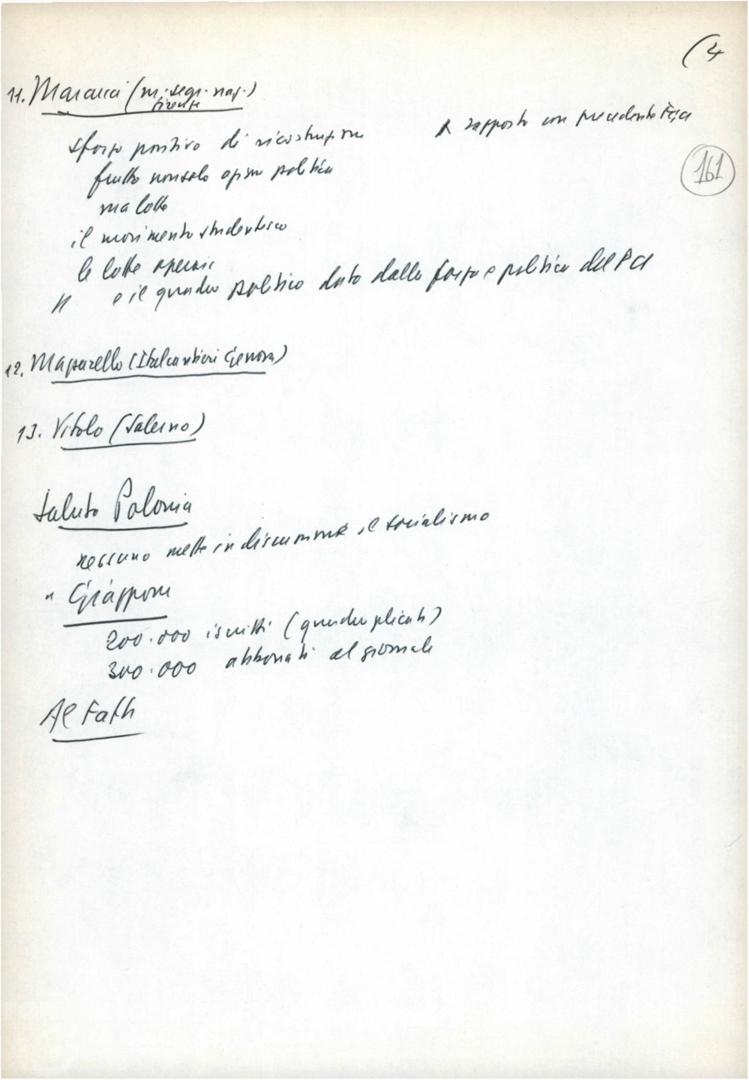 (4
11. Maracci (m. segr. naz.)
Firenze
sforzo positivo di ricostruzione
rapporto con precedente Fgci
161
frutto non solo opera politica
ma lotte
il movimento studentesco
le lotte operaie
e il quadro politico dato dalla forza e politica del PCI
12. Mazzarello (Italcantieri Genova)
13. Vitolo (Salerno)
Saluto Polonia
nessuno mette in discussione il socialismo
" Giappone
200.000 iscritti (quadruplicati)
300.000 abbonati al giornale
Al Fath